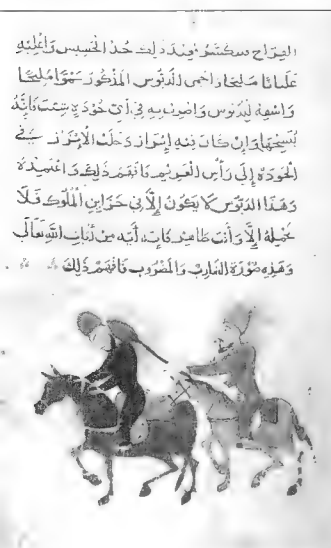 الصراح سكنتز فعند ذلك خذ الخسيس واغليه
غليانا مليحا واحمى الدبوس المذكور سموا مليحا
واسقه لدبوس واضرب به في أي خوده شئت فانه
يسحقها وان كان فيه ابراز دخلت الابراز في
الخوده إلى رأس الغريم فافهم ذلك واعتمده
وهذا الدبوس لا يكون إلا في خزاين الملوك فلا
تحمله إلا وأنت طاهر فإنه آية من آيات الله تعالى
وهذه صورة الضارب والمضروب فافهم ذلك